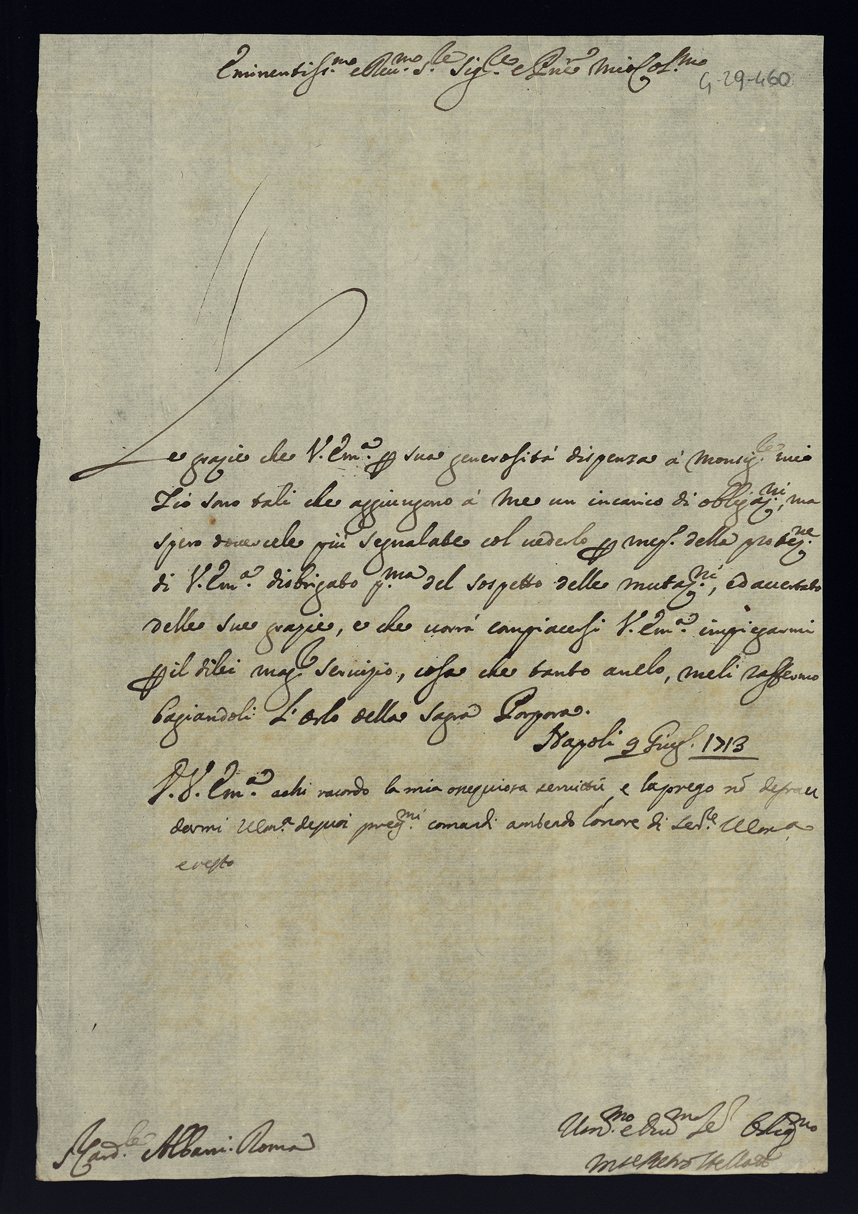 Eminentiss.mo e Reu.mo S.re Sig.re e Pne mio Col.mo
G-29-460
Le grazie che V. Em.a p sua generosità dispenza à Monsig.re mio
Zio sono tali che aggiungono à me un incarico di obligaz.ni, ma
spero douercele più segnalate col uederlo p mez. della protez.ne
di V. Em.a disbrigato p.ma del sospetto delle mutaz.ni, ed
delle sue grazie, e che uorrà compiacersi V. Em.a impiegarmi
p il dilei mag.r seruizio, cosa che tanto anelo, meli raffermo
bagiandoli l'orlo della sagra Porpora.
Napoli 9 Giug. 1713
V. Em.a achi racordo la mia ossequiosa seruitù, e la prego nõ defrau
darmi de suoi preg.ni comandi ambendo l'onore di
e resto
S. Card.le Albani. Roma
Um.mo e Diu.mo Se.r Oblig.mo